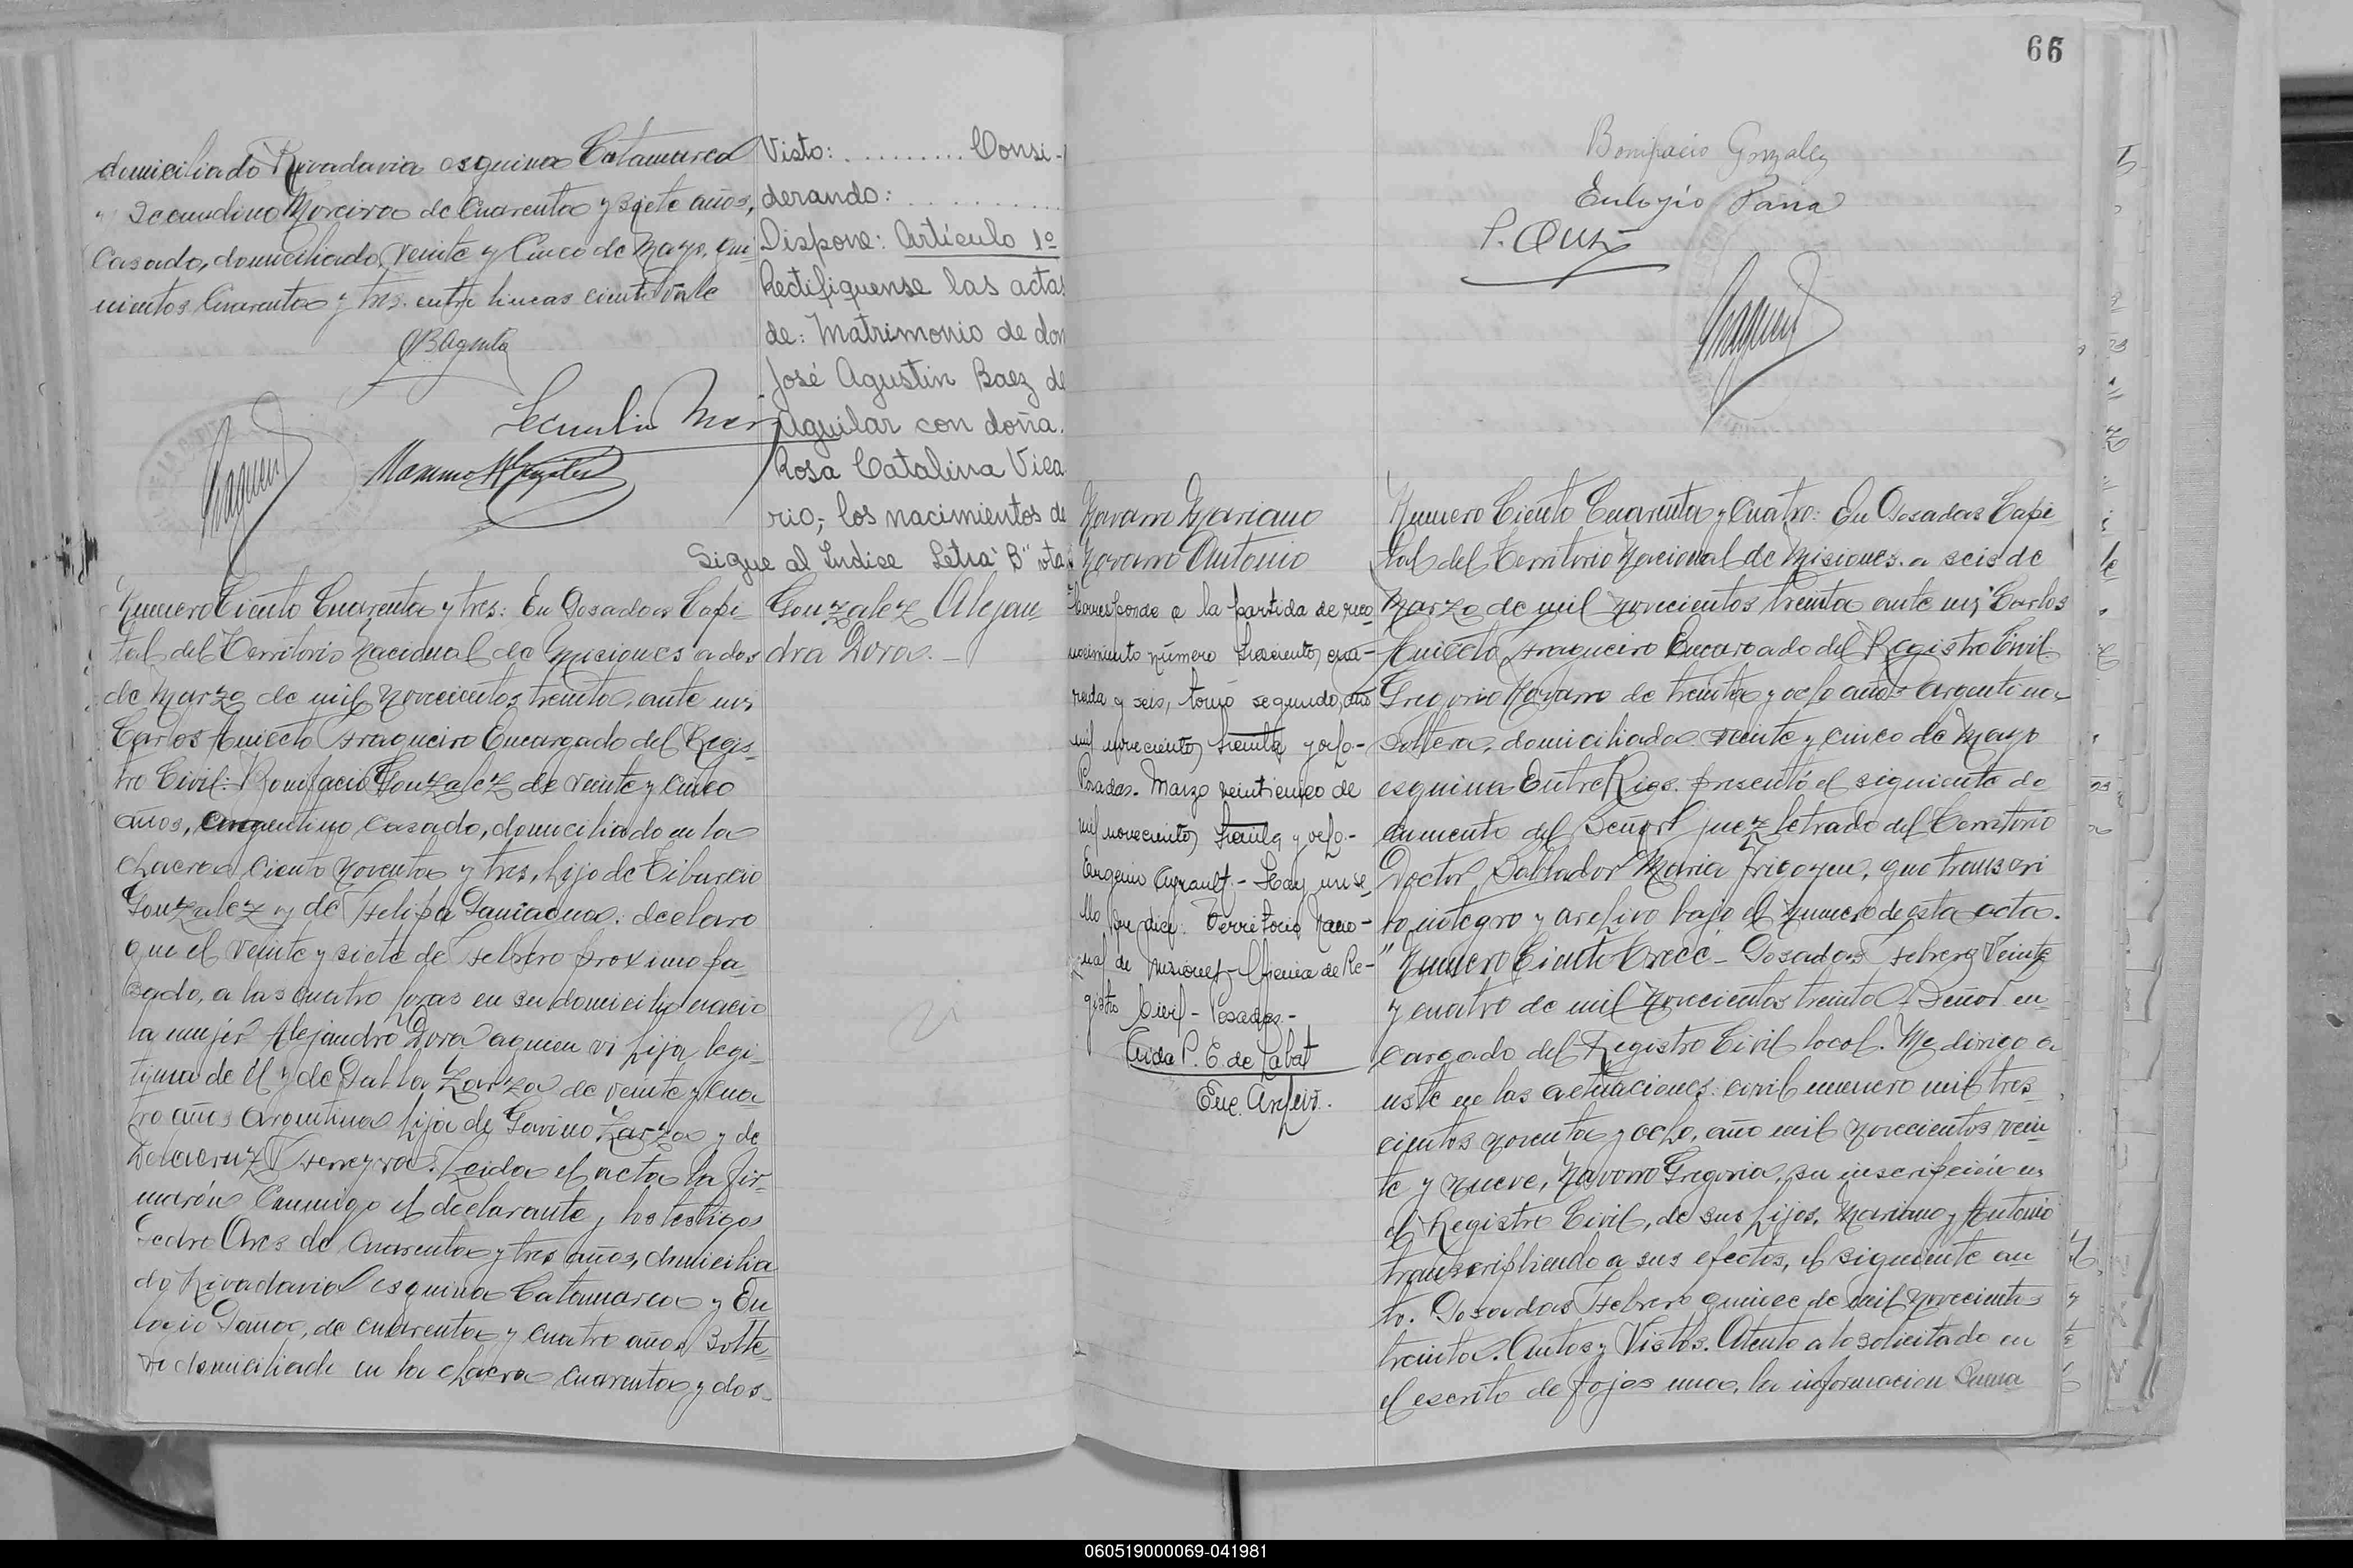 domiciliado Rivadavia esquina Catamarca
y Secundino Moreira de Cuarenta y siete años,
Casado, domiciliado, Veinte y Cinco de Mayo, qui
nientos Cuarenta y tres. entre lineas ciento Vale
Visto: .......... Consi-
derando: ..........
Dispone: Artículo 1º
Rectifiquense las actas
de: Matrimonio de don
José Agustin Baez de
Aguilar con doña.
Rosa Catalina Vica
rio,- los nacimientos de
Sigue al Indice Letra "B"
Numero Ciento Cuarenta y tres: En Posadas Capi-
tal del Territorio Nacional de Misiones a dos
de Marzo de mil novecientos treinta, ante mi
Carlos Aniceto Fragueiro Encargado del Regis-
tro Civil: Bonifacio Gonzalez de veinte y cinco
años, argentino casado, domiciliado en la
chacra ciento noventa y tres, hijo de Tiburcio
Gonzalez y de Felipa Paniagua: declaro
que el veinte y siete de Febrero proximo pa-
sado, a las cuatro horas en su domicilio nacio
la mujer Alejandra Dora a quien vi hija legi-
tima de él y de Zarza de veinte y cua
tro años argentina hija de Gavino Zarza y de
Delacruz Ferreyra. Leida el acta la fir-
marón Conmigo el declarante y los testigos
Pedro Ores de Cuarenta y tres años, domicilia
do Rivadavia esquina Catamarca y Eu
logio de cuarenta y cuatro años Solte-
ro domiciliado en la chacra Cuarenta y dos-
Gonzalez Alejan
dra Dora.-
66
Bonifacio Gonzalez
Eulogio
Navarro Mariano
Navarro Antonio
Corresponde a la partida de reco
nocimiento número trescientos cua-
renta y seis, tomo segundo, año
mil novecientos treinta y ocho.-
Posadas. Marzo veinticinco de
mil novecientos treinta y ocho.-
Eugenio - Hay un se
llo que dice: Territorio Nacio-
nal de Misiones - Oficina de Re-
gistro Civil - Posadas.-
P. C. de Labat
Enc. Archivo.
Numero Ciento Cuarenta y Cuatro: En Posadas Capi
tal del Territorio Nacional de Misiones. a seis de
Marzo de mil novecientos treinta ante mi Carlos
Aniceto Fragueiro Encargado del Registro Civil
Gregoria Navarro de treinta y ocho años argentina
Soltera, domiciliada veinte y cinco de Mayo
esquina Entre Rios. presentó el siguiente do
cumento del Señor juez letrado del Territorio
Doctor Salvador Maria Irigoyen, que transcri
bo integro y archivo bajo el numero de esta acta.
"Numero Ciento Trece - Posadas Febrero Veinte
y cuatro de mil novecientos treinta. Señor en
cargado del Registro Civil local. Me dirijo a
usted en las actuaciones: civil numero mil tres
cientos noventa y ocho, año mil novecientos vein
te y nueve, Navarro Gregoria, su inscripción en
el Registro Civil, de sus hijos, Mariano y Antonio
transcribiendo a sus efectos, el siguiente au
to. Posadas Febrero quince de mil novecientos
treinta. Autos y Vistos. Atento a lo solicitado en
el escrito de fojas una, la informacion
060519000069-041981